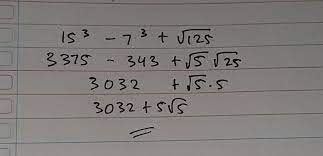 15³ - 7³ + √125
3375 - 343 + √5 √25
3032 + √5 · 5
3032 + 5√5